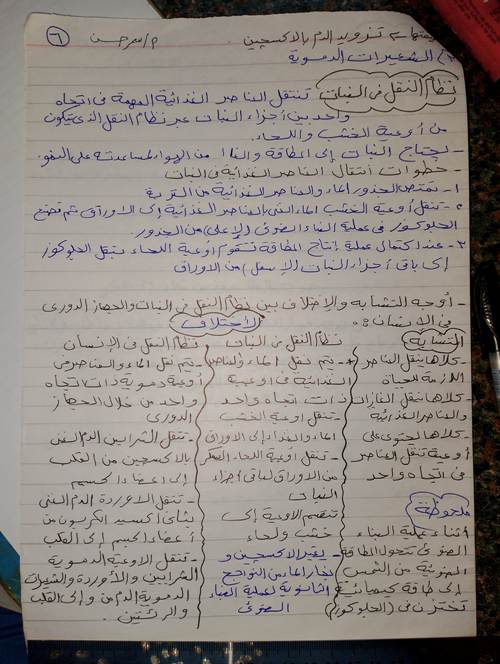 تزويد الدم بالأكسجين
م/سمر حسن
٦
الشعيرات الدموية
نظام النقل في النبات
تنتقل العناصر الغذائية المهمة في اتجاه
واحد بين أجزاء النبات عبر نظام النقل الذي يتكون
من أوعية الخشب واللحاء.
- يحتاج النبات إلى الطاقة من الهواء لمساعدته على النمو
- خطوات انتقال العناصر الغذائية في النبات
١- تمتص الجذور الماء والعناصر الغذائية من التربة
٢- تنقل أوعية الخشب الماء الغني بالعناصر الغذائية إلى الأوراق ثم تصنع
الجلوكوز في عملية البناء الضوئي (لأعلى) من الجذور
٣- عند اكتمال عملية إنتاج الطاقة تقوم أوعية اللحاء بنقل الجلوكوز
إلى باقي أجزاء النبات (لأسفل) من الأوراق
- أوجه التشابه والإختلاف بين نظام النقل في النبات والجهاز الدوري
في الإنسان:
التشابه
- كلاها ينقل العناصر
اللازمة للحياة
- كلاها تنقل الغازات
والعناصر الغذائية
- كلاها يحتوي على
أوعية تنقل العناصر
في اتجاه واحد
ملحوظة
أثناء عملية البناء
الضوئي تتحول الطاقة
الضوئية من الشمس
إلى طاقة كيميائية
تختزن في (الجلوكوز)
الأختلاف
نظام النقل في النبات
- يتم نقل الماء والعناصر
الغذائية في أوعية
ذات اتجاه واحد
- تنقل أوعية الخشب
الماء والغذاء إلى الأوراق
- تنقل أوعية اللحاء السكر
من الأوراق لباقي أجزاء
النبات
تنقسم الأوعية إلى
خشب ولحاء
- يعتبر الأكسجين و
بخار الماء من النواتج
الثانوية لعملية البناء
الضوئي
نظام النقل في الإنسان
- يتم نقل الماء والعناصر في
أوعية دموية ذات اتجاه
واحد من خلال الجهاز
الدوري
- تنقل الشرايين الدم الغني
بالأكسجين من القلب
إلى أعضاء الجسم
- تنقل الأوردة الدم الغني
بثاني أكسيد الكربون من
أعضاء الجسم إلى القلب
- تنقل الأوعية الدموية
الشرايين والأوردة والشعيرات
الدموية الدم من وإلى القلب
والرئتين.